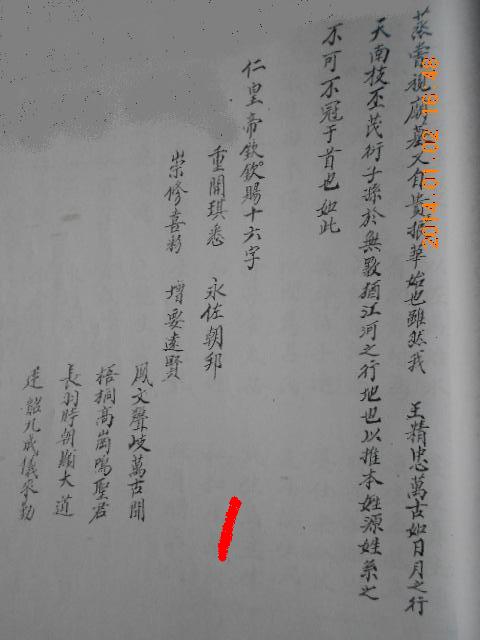 蒸嘗視廟墓又自貴振華始也雖然我 王精忠萬古如日月之行
天南枝丕茂衍子孫於無數猶江河之行地也以推本姓源姓系之
不可不冠于首也如此
仁皇帝欽賜十六字
重開琪悉 永佐朝邦
崇修喜彩 增要遠賢
鳳文聲岐萬古聞
梧桐高崗鳴聖君
長羽時朝瑞大道
韶九成儀來勤
2014.01.02 16:48